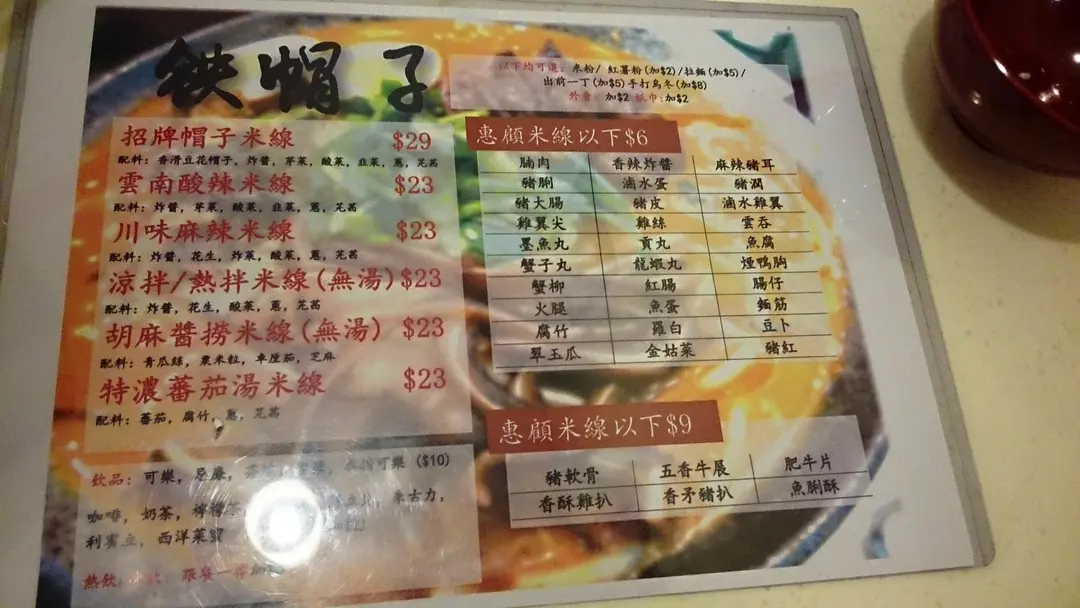 鉄帽子
以下均可選: 米粉/ 紅薯粉(加$2)/拉麵(加$5)/
出前一丁(加$5)手打烏冬(加$8)
外賣: 加$2 紙巾:加$2
招牌帽子米線 $29
配料: 香滑豆花帽子, 炸醬, 芽菜, 酸菜, 韭菜, 蔥, 芫茜
雲南酸辣米線 $23
配料: 炸醬, 芽菜, 酸菜, 韭菜, 蔥, 芫茜
川味麻辣米線 $23
配料: 炸醬, 花生, 炸菜, 酸菜, 蔥, 芫茜
涼拌/熱拌米線(無湯)$23
配料: 炸醬, 花生, 酸菜, 蔥, 芫茜
胡麻醬撈米線(無湯) $23
配料: 青瓜絲, 粟米粒, 車厘茄, 芝麻
特濃蕃茄湯米線 $23
配料: 蕃茄, 腐竹, 蔥, 芫茜
飲品: 可樂, 忌廉, 可樂 ($10)
咖啡, 奶茶, 檸檬茶, 朱古力,
利賓立, 西洋菜蜜
熱飲
惠顧米線以下$6
腩肉 香辣炸醬 麻辣豬耳
豬脷 滷水蛋 豬潤
豬大腸 豬皮 滷水雞翼
雞翼尖 雞絲 雲吞
墨魚丸 貢丸 魚腐
蟹子丸 龍蝦丸 煙鴨胸
蟹柳 紅腸 腸仔
火腿 魚蛋 麵筋
腐竹 羅白 豆卜
翠玉瓜 金姑菜 豬紅
惠顧米線以下$9
豬軟骨 五香牛展 肥牛片
香酥雞扒 香矛豬扒 魚脷酥